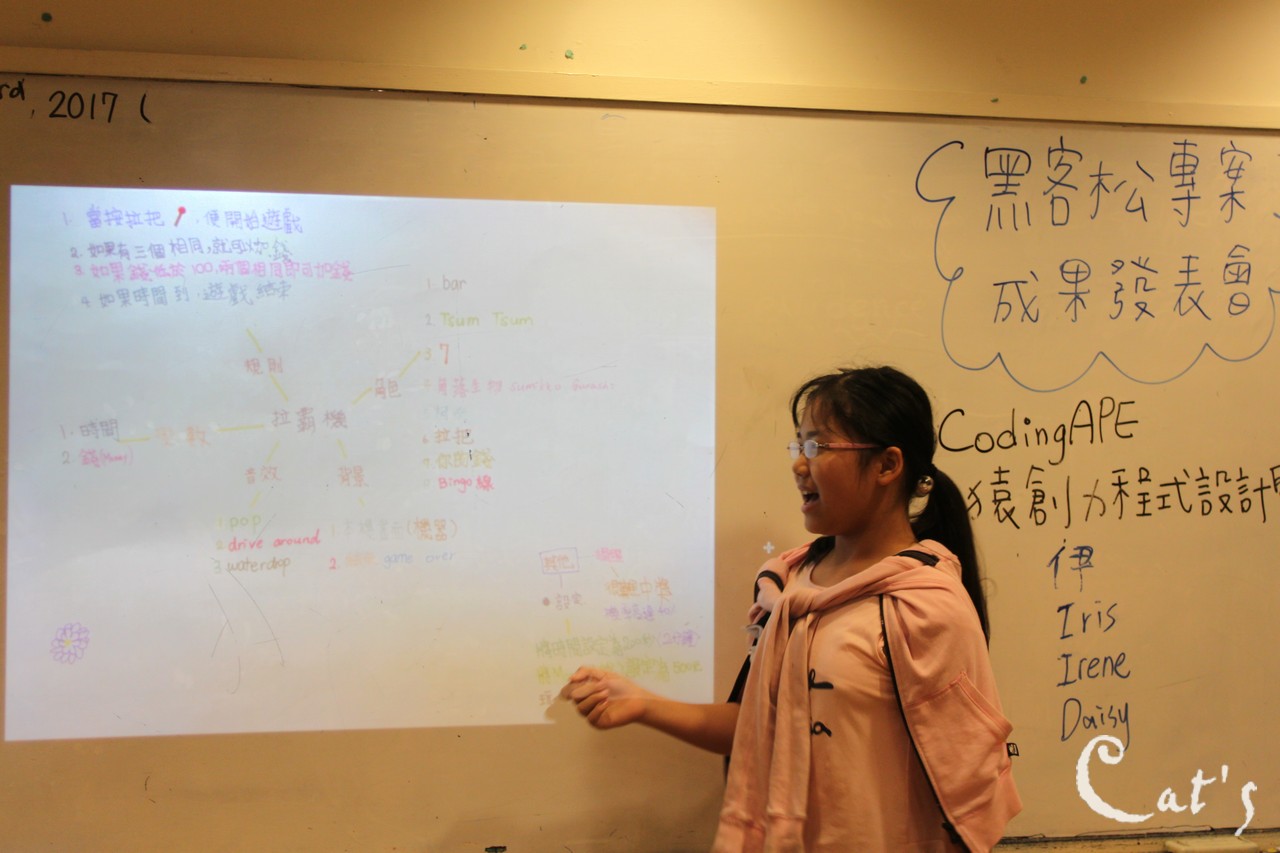 rd, 2017 (
黑客松專案
成果發表會
CodingAPE
猿創力程式設計
伊
Iris
Irene
Daisy
1. 當按拉把，便開始遊戲
2. 如果有三個相同，就可以加錢
3. 如果錢低於100，兩個相同即可加錢
4. 如果時間到，遊戲結束
規則
拉霸機
角色
1. bar
2. Tsum Tsum
3. 7
角落生物
拉把
你的錢
Bingo線
變數
1. 時間
2. 錢(Money)
音效
1. pop
2. drive around
3. waterdrop
背景
(機器)
2. game over
其他
設定
Cat's